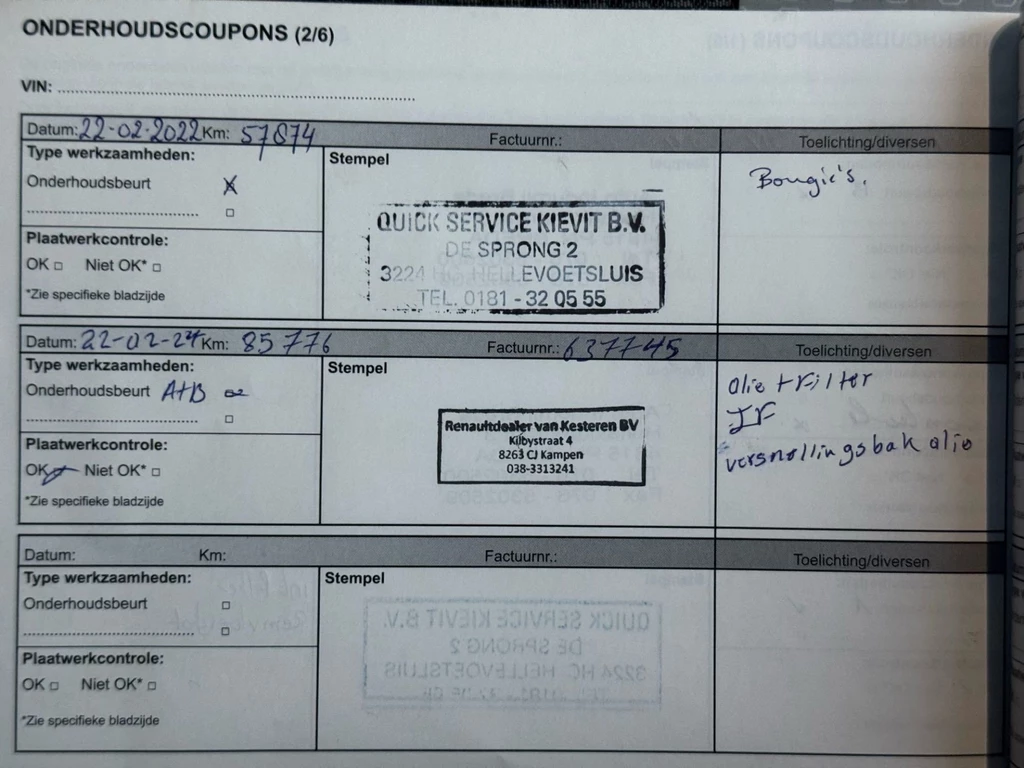 ONDERHOUDSCOUPONS (2/6)
VIN: ........................................................
Datum: 22-02-2022 Km: 57874 Factuurnr.: Toelichting/diversen
Type werkzaamheden:
Stempel
Bougie's.
Onderhoudsbeurt X
QUICK SERVICE KIEVIT B.V.
DE SPRONG 2
3224 HC HELLEVOETSLUIS
TEL. 0181 - 32 05 55
Plaatwerkcontrole:
OK □ Niet OK* □
*Zie specifieke bladzijde
Datum: 22-02-24 Km: 85776 Factuurnr.: 637745 Toelichting/diversen
Type werkzaamheden:
Stempel
olie + Filter
IF
versnellingsbak olie
Onderhoudsbeurt A+B
Renaultdealer van Kesteren BV
Kilbystraat 4
8263 CJ Kampen
038-3313241
Plaatwerkcontrole:
OK Niet OK* □
*Zie specifieke bladzijde
Datum: Km: Factuurnr.: Toelichting/diversen
Type werkzaamheden:
Stempel
Onderhoudsbeurt □
Plaatwerkcontrole:
OK □ Niet OK* □
*Zie specifieke bladzijde